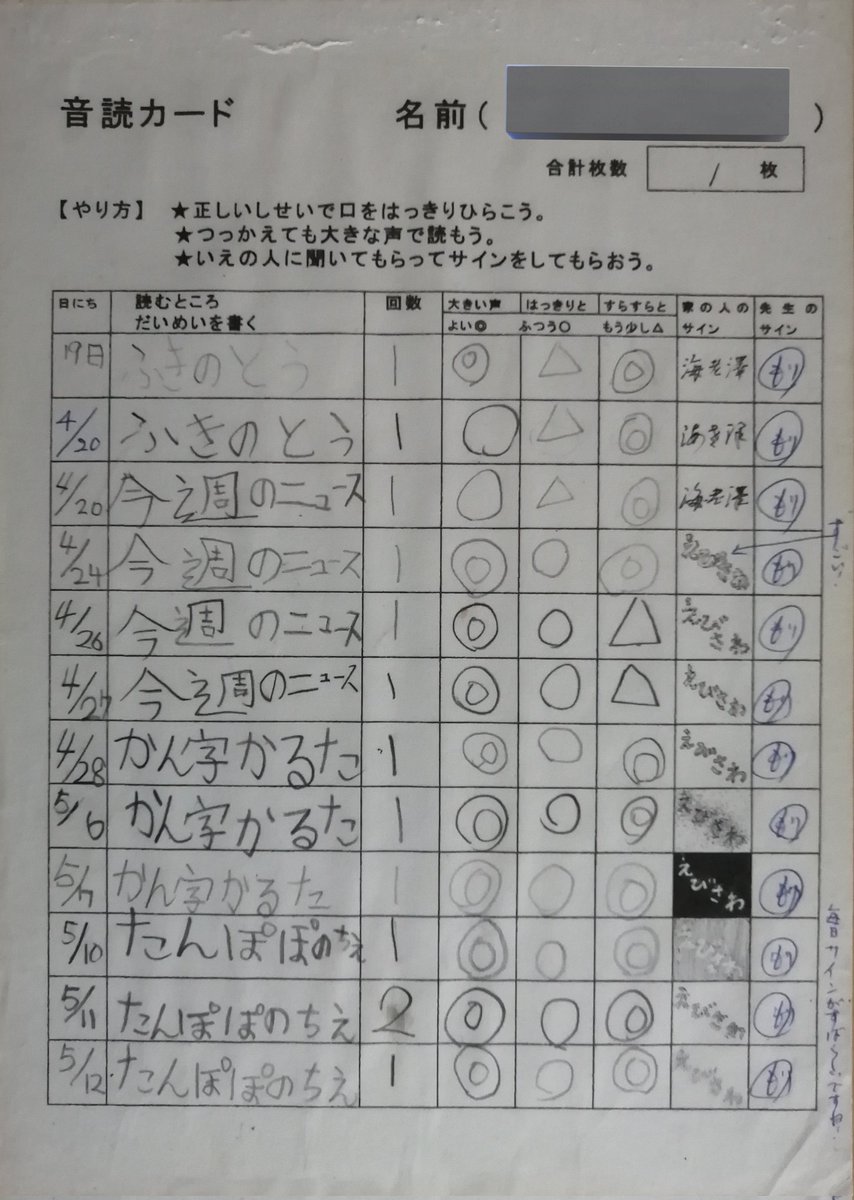 音読カード 名前( )
合計枚数 / 枚
【やり方】 ★正しいしせいで口をはっきりひらこう。
★つっかえても大きな声で読もう。
★いえの人に聞いてもらってサインをしてもらおう。
日にち 読むところ だいめいを書く 回数 大きい声 はっきりと すらすらと 家の人のサイン 先生のサイン
よい◎ ふつう○ もう少し△
19日 ふきのとう 1 ◎ △ ◎ 海老澤 もり
4/20 ふきのとう 1 ○ △ ◎ 海老澤 もり
4/20 今週のニュース 1 ○ △ ◎ 海老澤 もり
4/24 今週のニュース 1 ◎ ○ ◎ えびさわ もり
すごい!
4/26 今週のニュース 1 ◎ ○ △ えびさわ もり
4/27 今週のニュース 1 ◎ ○ △ えびさわ もり
4/28 かん字かるた 1 ◎ ○ ◎ えびさわ もり
5/6 かん字かるた 1 ◎ ◎ ◎ えびさわ もり
5/7 かん字かるた 1 ◎ ○ ◎ えびさわ もり
5/10 たんぽぽのちえ 1 ◎ ○ ◎ えびさわ もり
5/11 たんぽぽのちえ 2 ◎ ○ ◎ えびさわ もり
5/12 たんぽぽのちえ 1 ◎ ○ ◎ えびさわ もり
毎日サインがすばらしいですね…